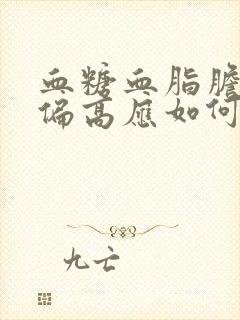 血糖血脂膽
偏高應如何
九亡